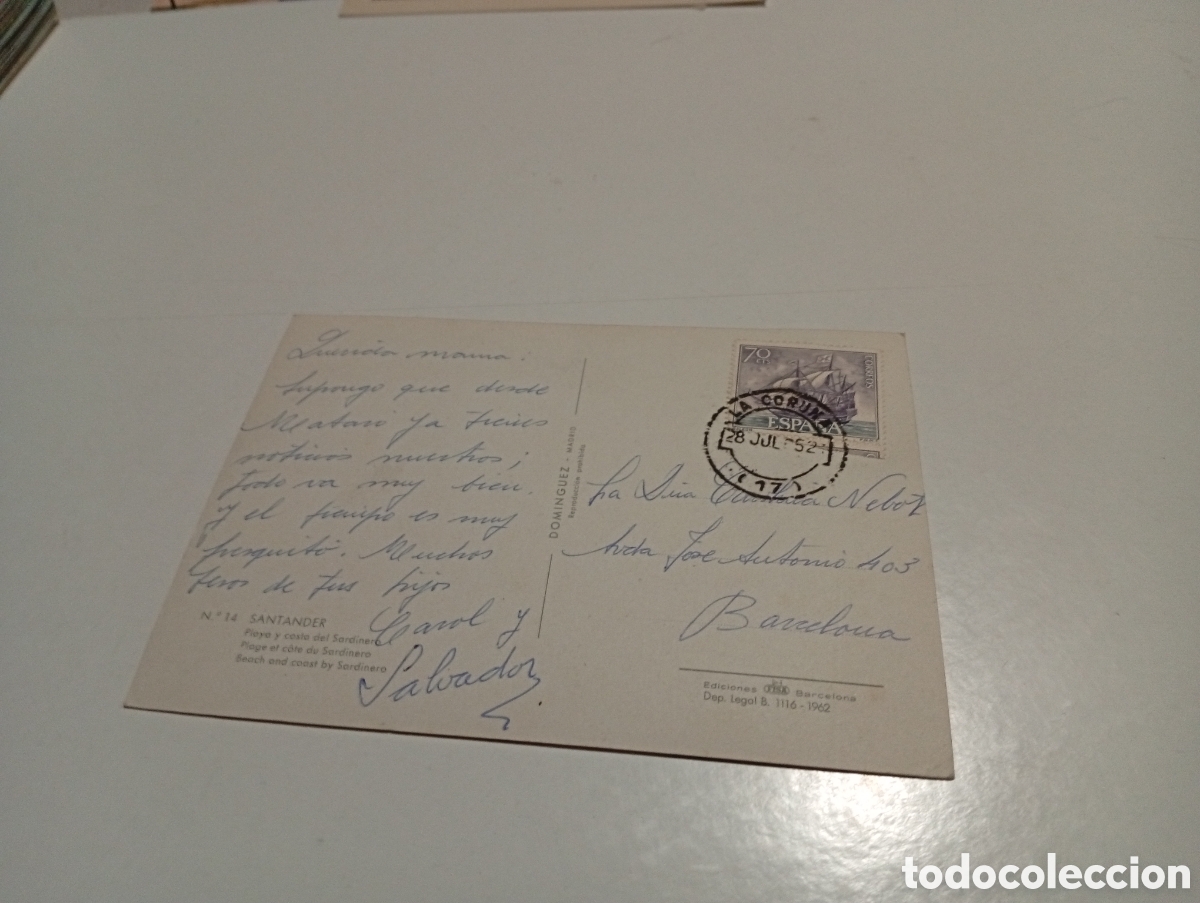 Querida mama:
Supongo que desde
Mataro ya tienes
noticias nuestras;
todo va muy bien,
y el tiempo es muy
fresquito. Muchos
besos de tus hijos
Carol y
Salvador
N.º 14 SANTANDER
Playa y costa del Sardinero
Plage et côte du Sardinero
Beach and coast by Sardinero
DOMINGUEZ - MADRID
Reproducción prohibida
70 CTS
CORREOS
ESPAÑA
LA CORUÑA
28 JUL
(17)
Nebot
Avda José Antonio 403
Barcelona
Ediciones Barcelona
Dep. Legal B. 1116 - 1962
todocoleccion